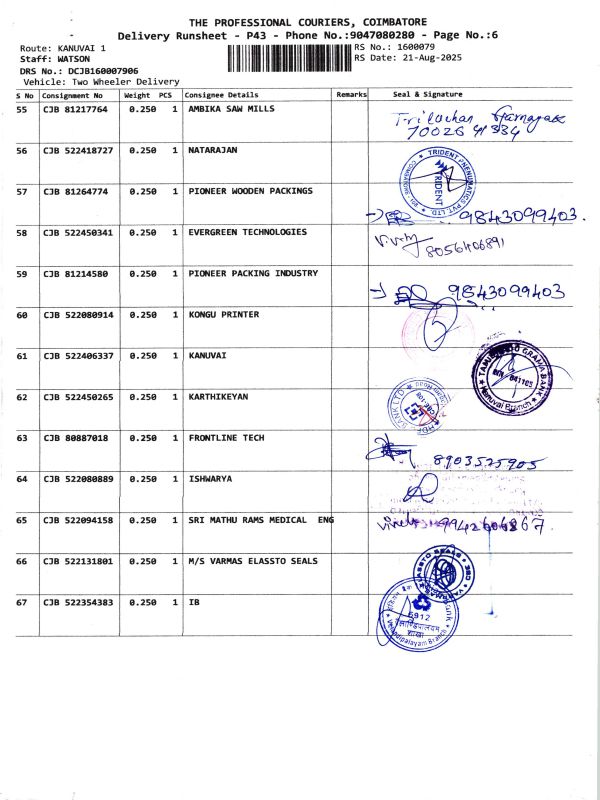 THE PROFESSIONAL COURIERS, COIMBATORE
Delivery Runsheet - P43 - Phone No.:9047080280 - Page No.:6
Route: KANUVAI 1 RS No.: 1600079
Staff: WATSON RS Date: 21-Aug-2025
DRS No.: DCJB160007906
Vehicle: Two Wheeler Delivery
S No Consignment No Weight PCS Consignee Details Remarks Seal & Signature
55 CJB 81217764 0.250 1 AMBIKA SAW MILLS
70026 41334
56 CJB 522418727 0.250 1 NATARAJAN
TRIDENT PNEUMATICS PVT LTD.
TRIDENT
57 CJB 81264774 0.250 1 PIONEER WOODEN PACKINGS
9843099403.
58 CJB 522450341 0.250 1 EVERGREEN TECHNOLOGIES
8056406891
59 CJB 81214580 0.250 1 PIONEER PACKING INDUSTRY
9843099403
60 CJB 522080914 0.250 1 KONGU PRINTER
61 CJB 522406337 0.250 1 KANUVAI
TAMIL NADU GRAMA BANK
Kanuvai Branch
62 CJB 522450265 0.250 1 KARTHIKEYAN
HDFC BANK LTD
63 CJB 80887018 0.250 1 FRONTLINE TECH
8903525905
64 CJB 522080889 0.250 1 ISHWARYA
65 CJB 522094158 0.250 1 SRI MATHU RAMS MEDICAL ENG
66 CJB 522131801 0.250 1 M/S VARMAS ELASSTO SEALS
67 CJB 522354383 0.250 1 IB
6912
शाखा